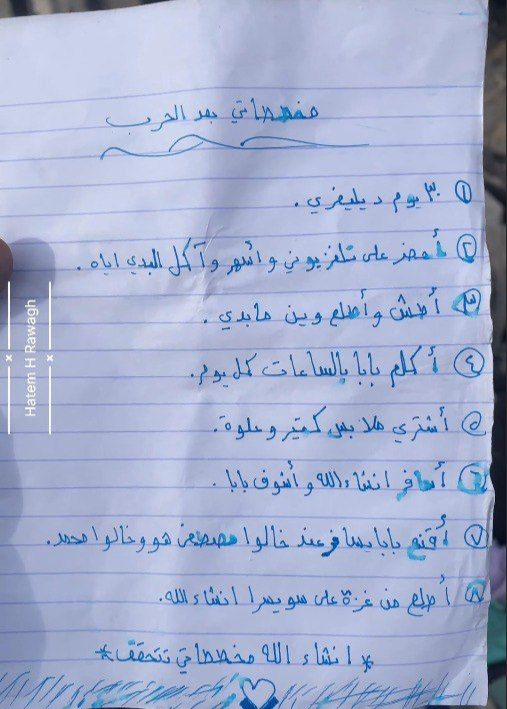 مخططاتي بعد الحرب
١ ٣٠ يوم ديليفري.
٢ أحضر على تلفزيوني وأسهر وآكل البدي اياه.
٣ أطش وأطلع وين ما بدي.
٤ أكلم بابا بالساعات كل يوم.
٥ أشتري ملابس كتير وحلوة.
٦ أسافر انشاءالله وأشوف بابا.
٧ أقنع بابا يسافر عند خالوا مصطفى هو وخالوا محمد.
٨ أطلع من غزة على سويسرا انشاءالله.
*انشاء الله مخططاتي تتحقق*
Hatem H Rawagh